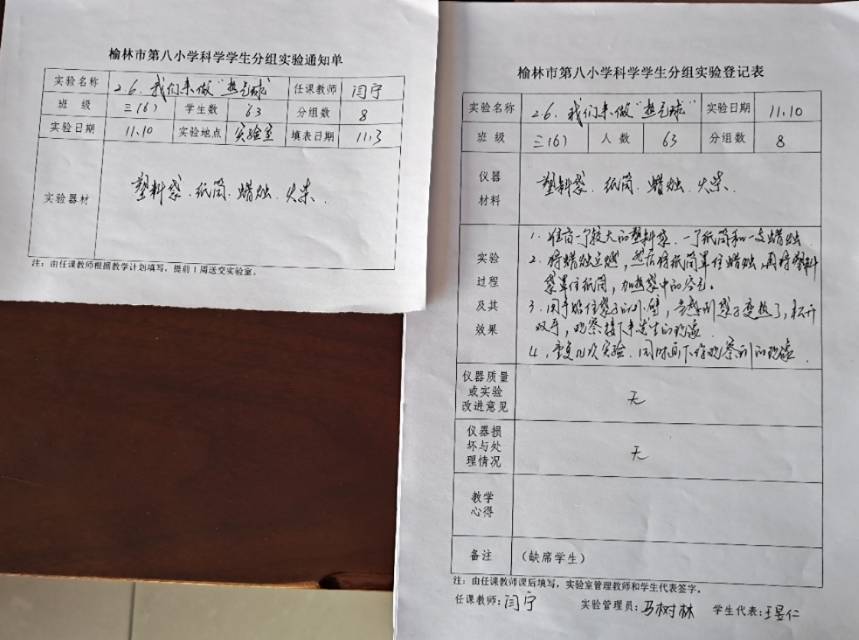 榆林市第八小学科学学生分组实验通知单
实验名称 2.6.我们来做"热气球" 任课教师 闫宁
班 级 三(6) 学生数 63 分组数 8
实验日期 11.10 实验地点 实验室 填表日期 11.3
实验器材 塑料袋、纸筒、蜡烛、火柴.
注：由任课教师根据教学计划填写，提前1周送交实验室。
榆林市第八小学科学学生分组实验登记表
实验名称 2.6.我们来做"热气球" 实验日期 11.10
班 级 三(6) 人 数 63 分组数 8
仪器
材料
塑料袋、纸筒、蜡烛、火柴.
实验
过程
及其
效果
1.准备一个较大的塑料袋、一个纸筒和一支蜡烛
2.将蜡烛点燃，然后将纸筒罩住蜡烛，用塑料
袋罩住纸筒，加热袋中的空气。
3.用手 住袋子的外壁，当感到袋子变热了，松开
双手，观察接下来发生的现象
4.重复几次实验.同时画下你观察到的现象.
仪器质量
或实验
改进意见
无
仪器损
坏与处
理情况
无
教学
心得
备注 (缺席学生)
注：由任课教师课后填写，实验室管理教师和学生代表签字。
任课教师：闫宁 实验管理员：马树林 学生代表：王昱仁